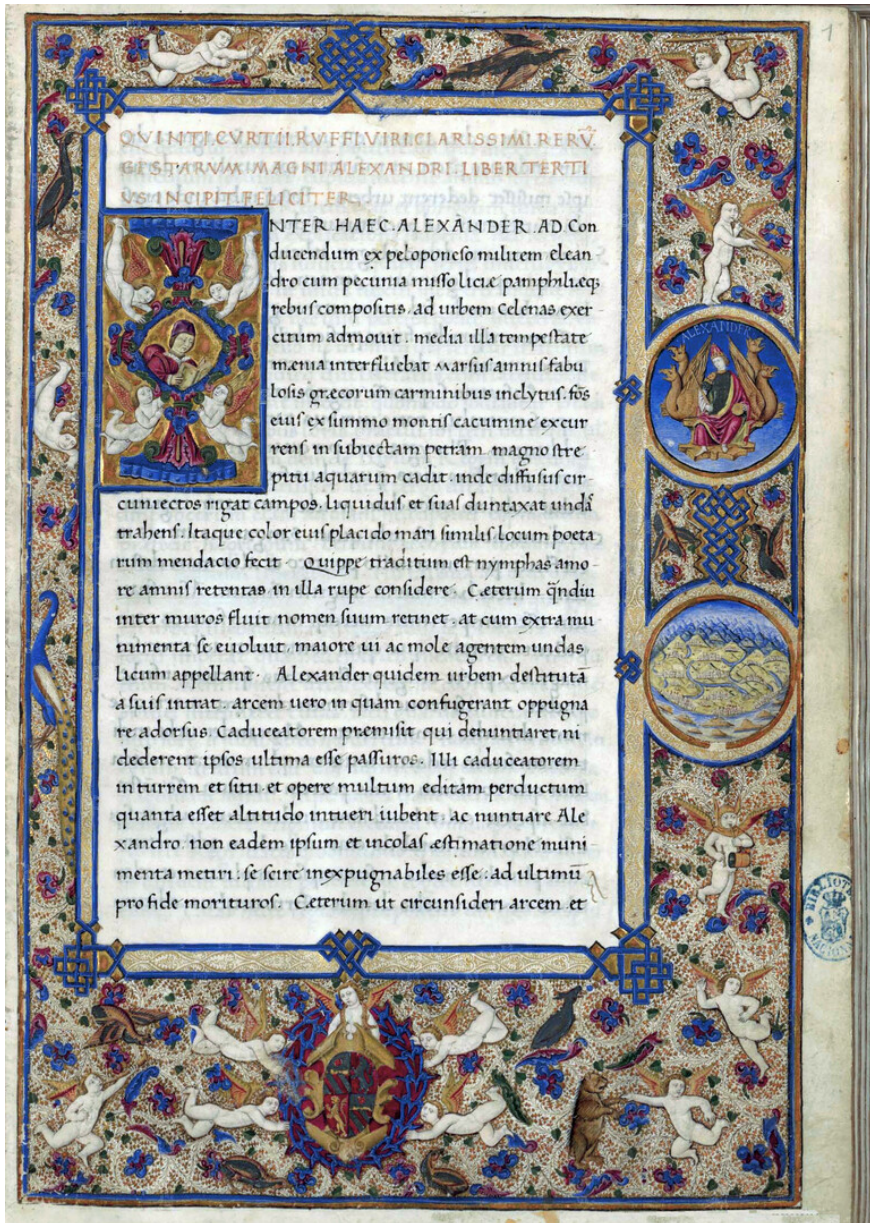 1
QVINTI.CVRTII.RVFFI.VIRI.CLARISSIMI.RERV̄.
GISTARVM.MAGNI.ALEXANDRI.LIBER TERTI
VS INCIPIT.FELICITER
INTER HAEC.ALEXANDER.AD.Con
ducendum ex peloponeso militem clean
dro cum pecunia misso liciæ pamphiliæq;
rebus compositis. ad urbem Celenas exer-
citum admouit. media illa tempestate
mænia interfluebat Marsus amnis fabu
losis græcorum carminibus inclytus. fōs
eius ex summo montis cacumine excur
rens in subiectam petram. magno stre
pitu aquarum cadit. inde diffusus cir-
cuniectos rigat campos. liquidus et suas duntaxat undā
trahens. Itaque color eius placido mari similis locum poeta
rum mendacio fecit. Quippe traditum est nymphas amo-
re amnis retentas. in illa rupe considere. Cæterum q̄ndiu
inter muros fluit nomen suum retinet. at cum extra mu
nimenta se euoluit. maiore ui ac mole agentem undas
licum appellant. Alexander quidem urbem destitutā
a suis intrat. arcem uero in quam confugerant oppugna
re adorsus. Caduceatorem præmisit. qui denuntiaret ni
dederent ipsos ultima esse passuros. Illi caduceatorem
in turrem et situ. et opere multum editam perductum
quanta esset altitudo intueri iubent. ac nuntiare Ale
xandro. non eadem ipsum et incolas æstimatione muni-
menta metiri. se scire inexpugnabiles esse. ad ultimū
pro fide morituros. Cæterum ut circunsideri arcem. et
ALEXANDER
BIBLIOTECA
NACIONAL